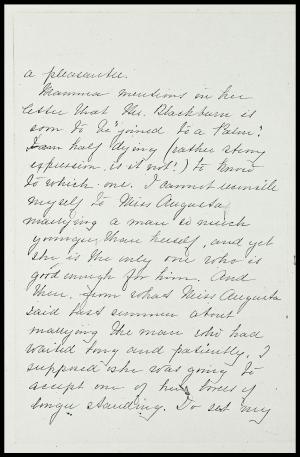 a pleasanter.
Mamma mentions in her
letter that Mr. Blackburn is
soon to be "joined to a Palm".
I am half dying (rather strong
expression is it not?) to know
to which one. I cannot reconcile
myself to Miss Augusta
marrying a man so much
younger than herself, and yet
she is the only one who is
good enough for him. And
then, from what Miss Augusta
said last summer about
marrying the man who had
waited long and patiently, I
supposed she was going to
accept one of her loves of
longer standing. To set my